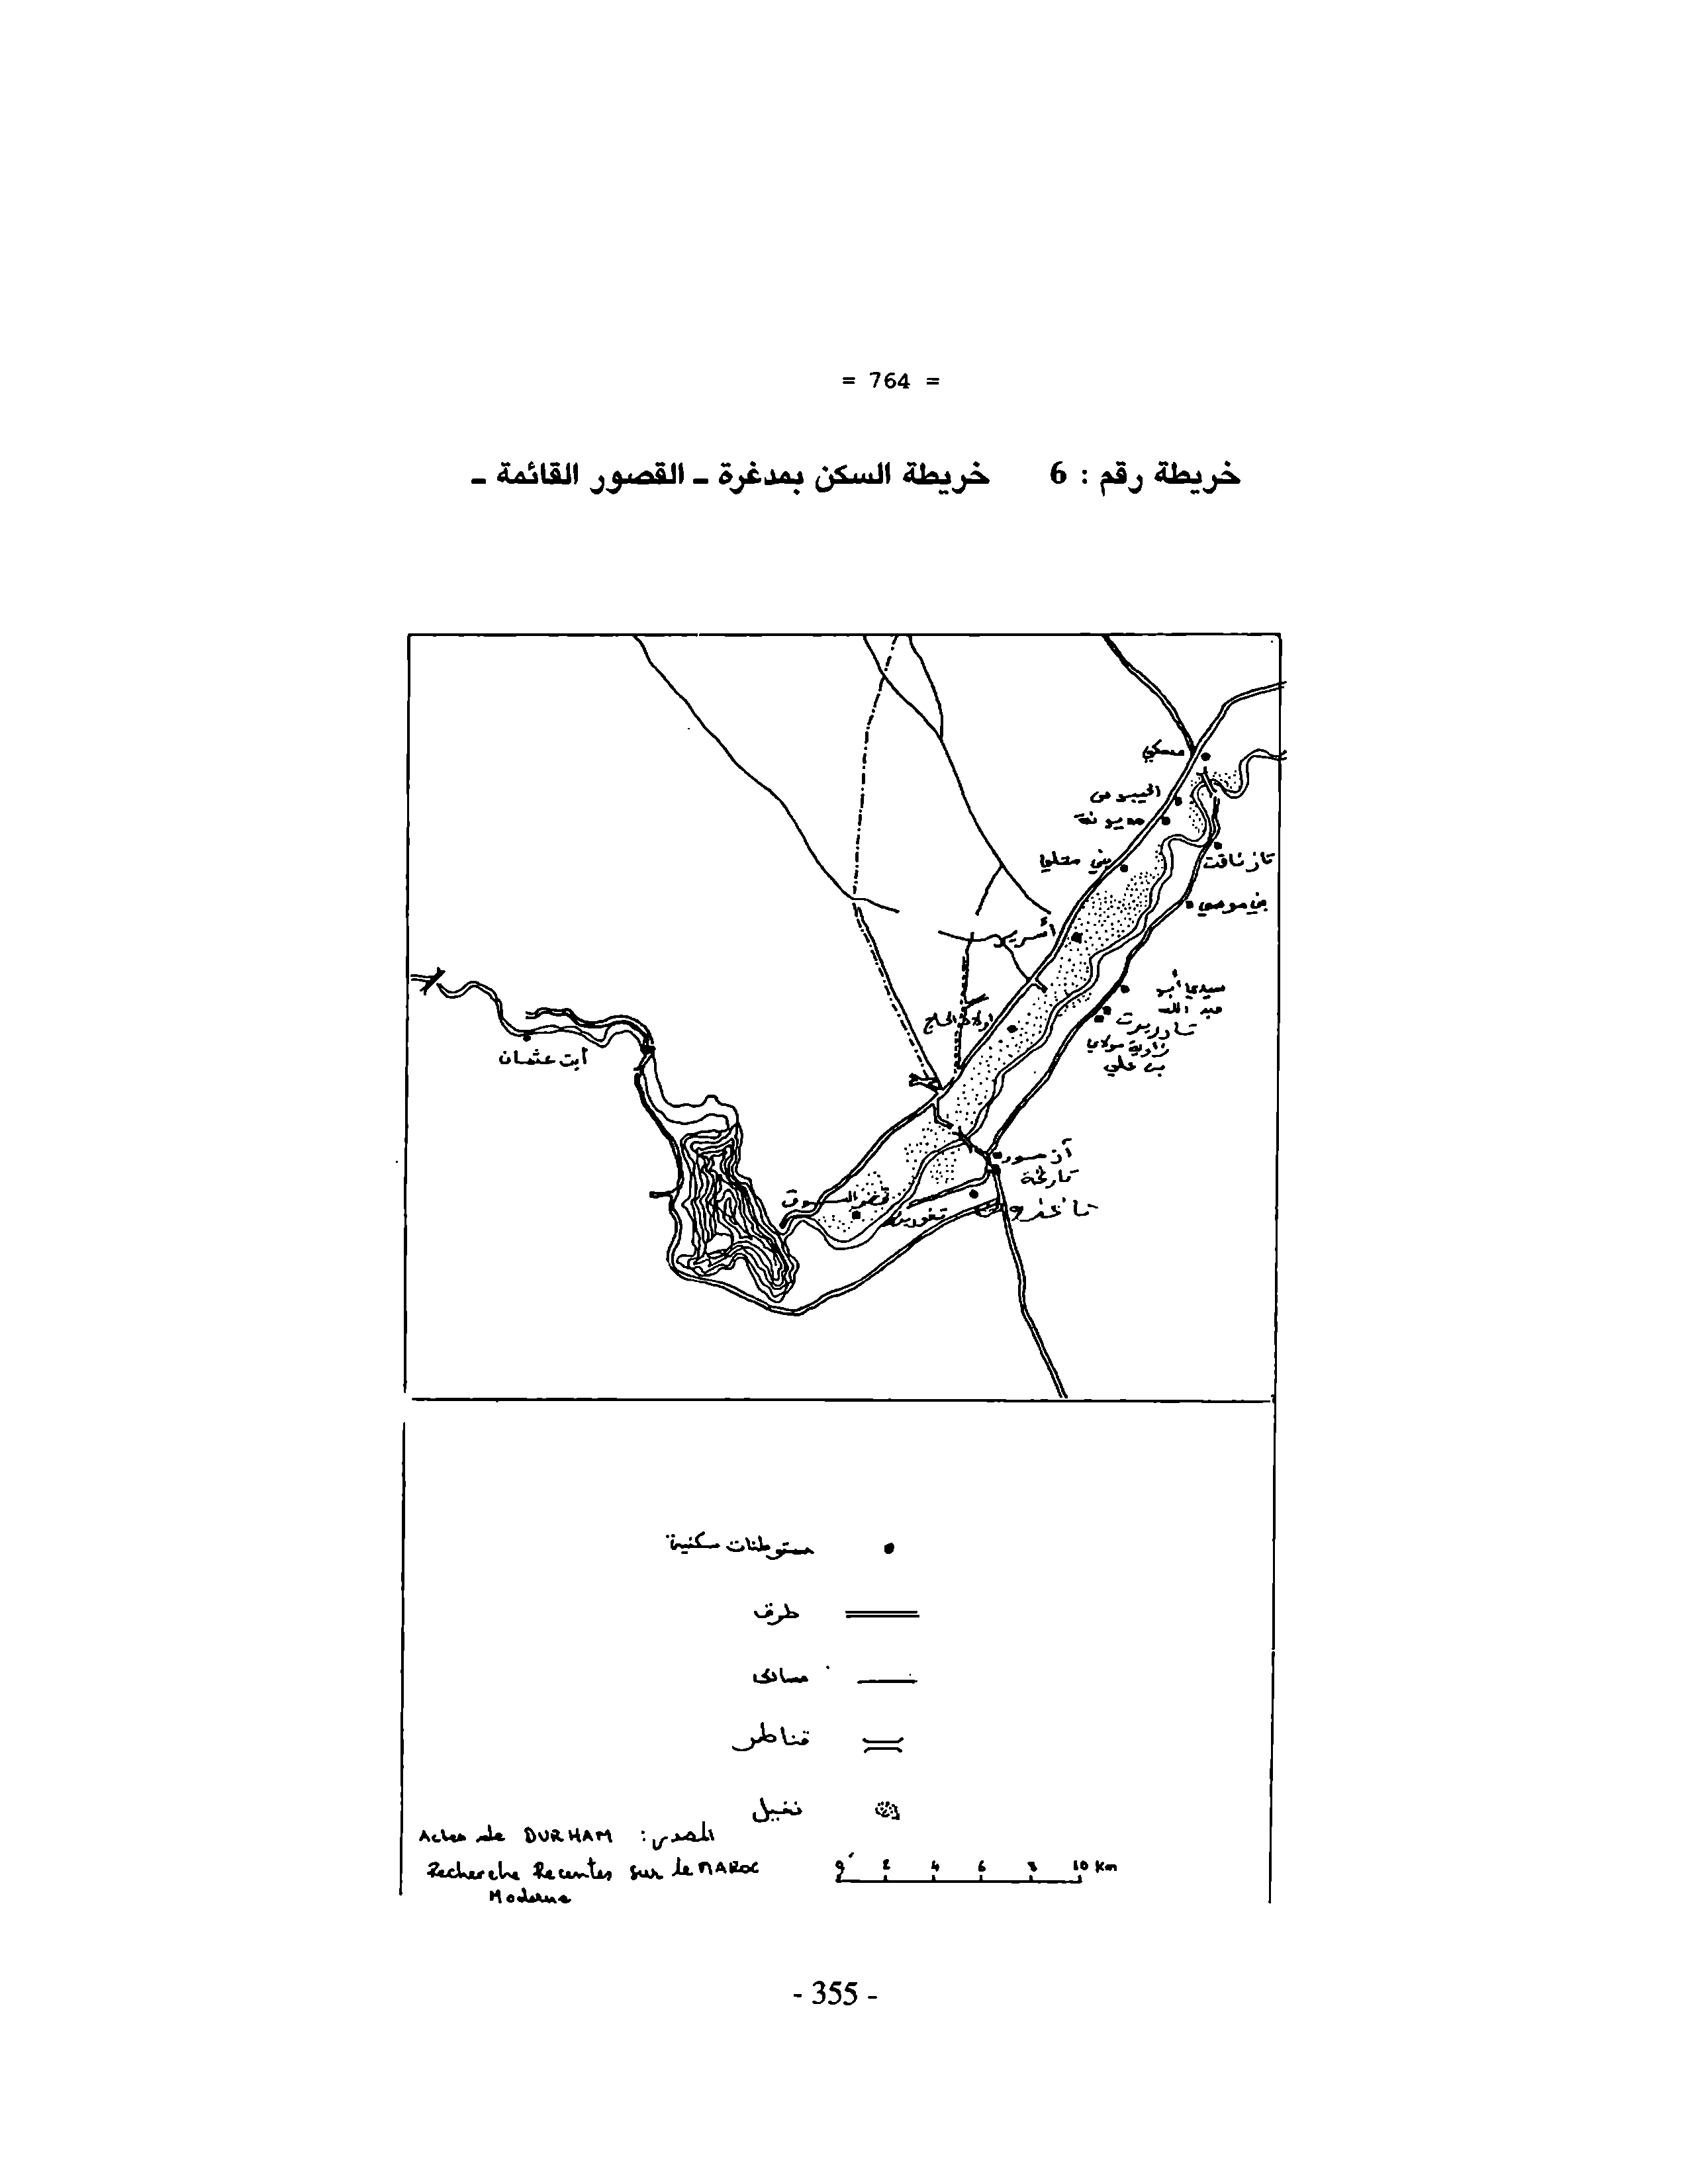 = 764 =
خريطة رقم : 6 خريطة السكن بمدغرة - القصور القائمة -
مسكي
الحيبوس
مديونة
بني محلي
تازناقت
بني موسي
أسرير
سيدي أبو
عبد الله
اولاد الحاج
تاوريرت
زاوية مولاي
بن علي
أيت عثمان
تاركة
قصر السوق
مستوطنات سكنية
طرق
مسالك
قناطر
نخيل
المصدر :
Actes de DURHAM
Recherche Recentes sur le MAROC
Moderne
0 2 4 6 8 10 Km
- 355 -